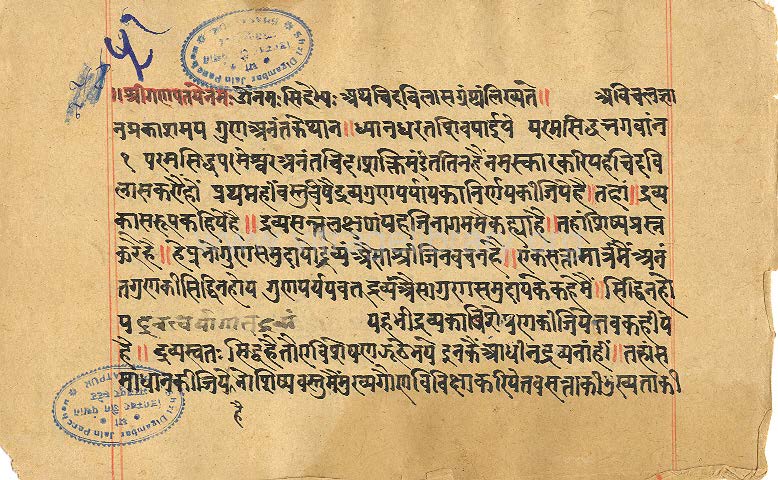 ॥श्रीगणपतयेनमः ॐनमःसिद्धेभ्यः अथचिदविलासग्रंथलिख्यते॥ अविचलज्ञा
नप्रकाशमय गुणअनंतकैथान॥ध्यानधरतशिवपाईये परमसिद्धभगवांन
१ परमसिद्धपरमेश्वरअनंतचिद्शक्तिमंडिततिनहैंनमस्कारकरियहचिदवि
लासकरौंहौं प्रथमहींवस्तुविषैद्रव्यगुणपर्यायकानिर्णयकीजियैहै॥तहां॥द्रव्य
कास्वरूपकहियैहै॥द्रव्यसत्लक्षणंयहजिनागममैंकह्याहै॥तहांशिष्यप्रस्न
करैहै॥हेप्रभोगुणसमुदायोद्रव्यंअैसाश्रीजिनवचनहै॥एकसत्तामात्रमैंअनं
तगुणकीसिद्धिनहोय गुणपर्ययवतद्रव्यंअैसागुणसमुदायकैकहेमैं॥सिद्धिनहो
य द्रवत्वयोगात्द्रव्यं यहभीद्रव्यकाविशेषणकीजियेतबकहीये
है॥द्रव्यस्वतः सिद्धहैतौएविशेषणझूठेभये इनकैंआधीनद्रव्यनांहीं॥तहांस
माधानकीजियैहैशिष्यवस्तुमैंमुख्यगौणविविक्षाकरियेतबसत्ताकीमुख्यताकी
है
Shri Digambar Jain Pancha
Shri Digambar Jain Pancha